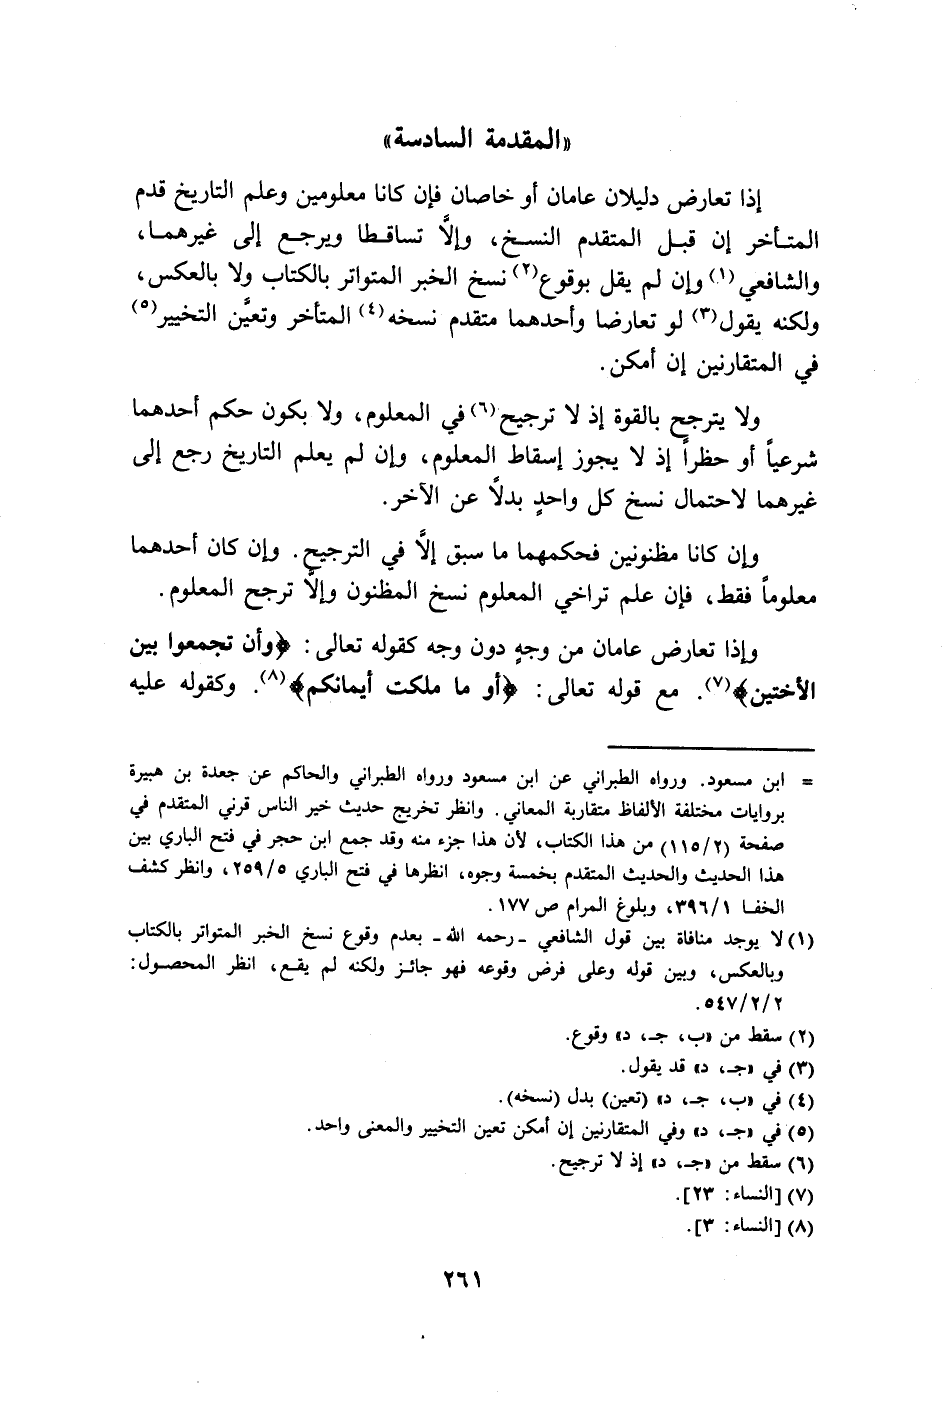 «المقدمة السادسة»
إذا تعارض دليلان عامان أو خاصان فإن كانا معلومين وعلم التاريخ قدم
المتأخر إن قبل المتقدم النسخ، وإلَّا تساقطا ويرجع إلى غيرهما،
والشافعي(١) وإن لم يقل بوقوع(٢) نسخ الخبر المتواتر بالكتاب ولا بالعكس،
ولكنه يقول(٣) لو تعارضا وأحدهما متقدم نسخه(٤) المتأخر وتعيَّن التخيير(٥)
في المتقارنين إن أمكن.
ولا يترجح بالقوة إذ لا ترجيح(٦) في المعلوم، ولا بكون حكم أحدهما
شرعياً أو حظراً إذ لا يجوز إسقاط المعلوم، وإن لم يعلم التاريخ رجع إلى
غيرهما لاحتمال نسخ كل واحدٍ بدلاً عن الآخر.
وإن كانا مظنونين فحكمهما ما سبق إلَّا في الترجيح. وإن كان أحدهما
معلوماً فقط، فإن علم تراخي المعلوم نسخ المظنون وإلَّا ترجح المعلوم.
وإذا تعارض عامان من وجهٍ دون وجه كقوله تعالى: ﴿وأن تجمعوا بين
الأختين﴾(٧). مع قوله تعالى: ﴿أو ما ملكت أيمانكم﴾(٨). وكقوله عليه
= ابن مسعود. ورواه الطبراني عن ابن مسعود ورواه الطبراني والحاكم عن جعدة بن هبيرة
بروايات مختلفة الألفاظ متقاربة المعاني. وانظر تخريج حديث خير الناس قرني المتقدم في
صفحة (١١٥/٢) من هذا الكتاب، لأن هذا جزء منه وقد جمع ابن حجر في فتح الباري بين
هذا الحديث والحديث المتقدم بخمسة وجوه، انظرها في فتح الباري ٢٥٩/٥، وانظر كشف
الخفا ٣٩٦/١، وبلوغ المرام ص ١٧٧.
(١) لا يوجد منافاة بين قول الشافعي - رحمه الله - بعدم وقوع نسخ الخبر المتواتر بالكتاب
وبالعكس، وبين قوله وعلى فرض وقوعه فهو جائز ولكنه لم يقع، انظر المحصول:
٥٤٧/٢/٢.
(٢) سقط من «ب، جـ، د» وقوع.
(٣) في «جـ، د» قد يقول.
(٤) في «ب، جـ، د» (تعين) بدل (نسخه).
(٥) في «جـ، د» وفي المتقارنين إن أمكن تعين التخيير والمعنى واحد.
(٦) سقط من «جـ، د» إذ لا ترجيح.
(٧) [النساء: ٢٣].
(٨) [النساء: ٣].
٢٦١